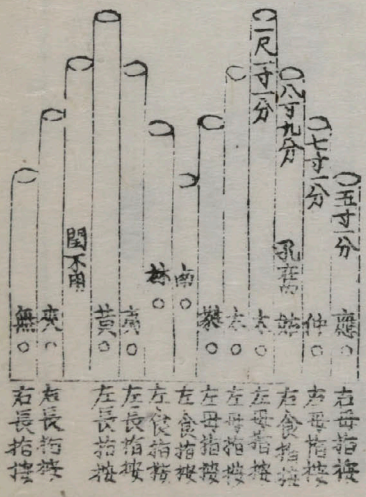 五寸一分
七寸一分
八寸九分
一尺一寸一分
孔
閏不用
應
仲
姑
太
太
南
林
夷
黃
夾
無
右母指按
右母指按
右食指按
左母指按
左母指按
左母指按
左食指按
左食指按
左長指按
左長指按
右長指按
右長指按